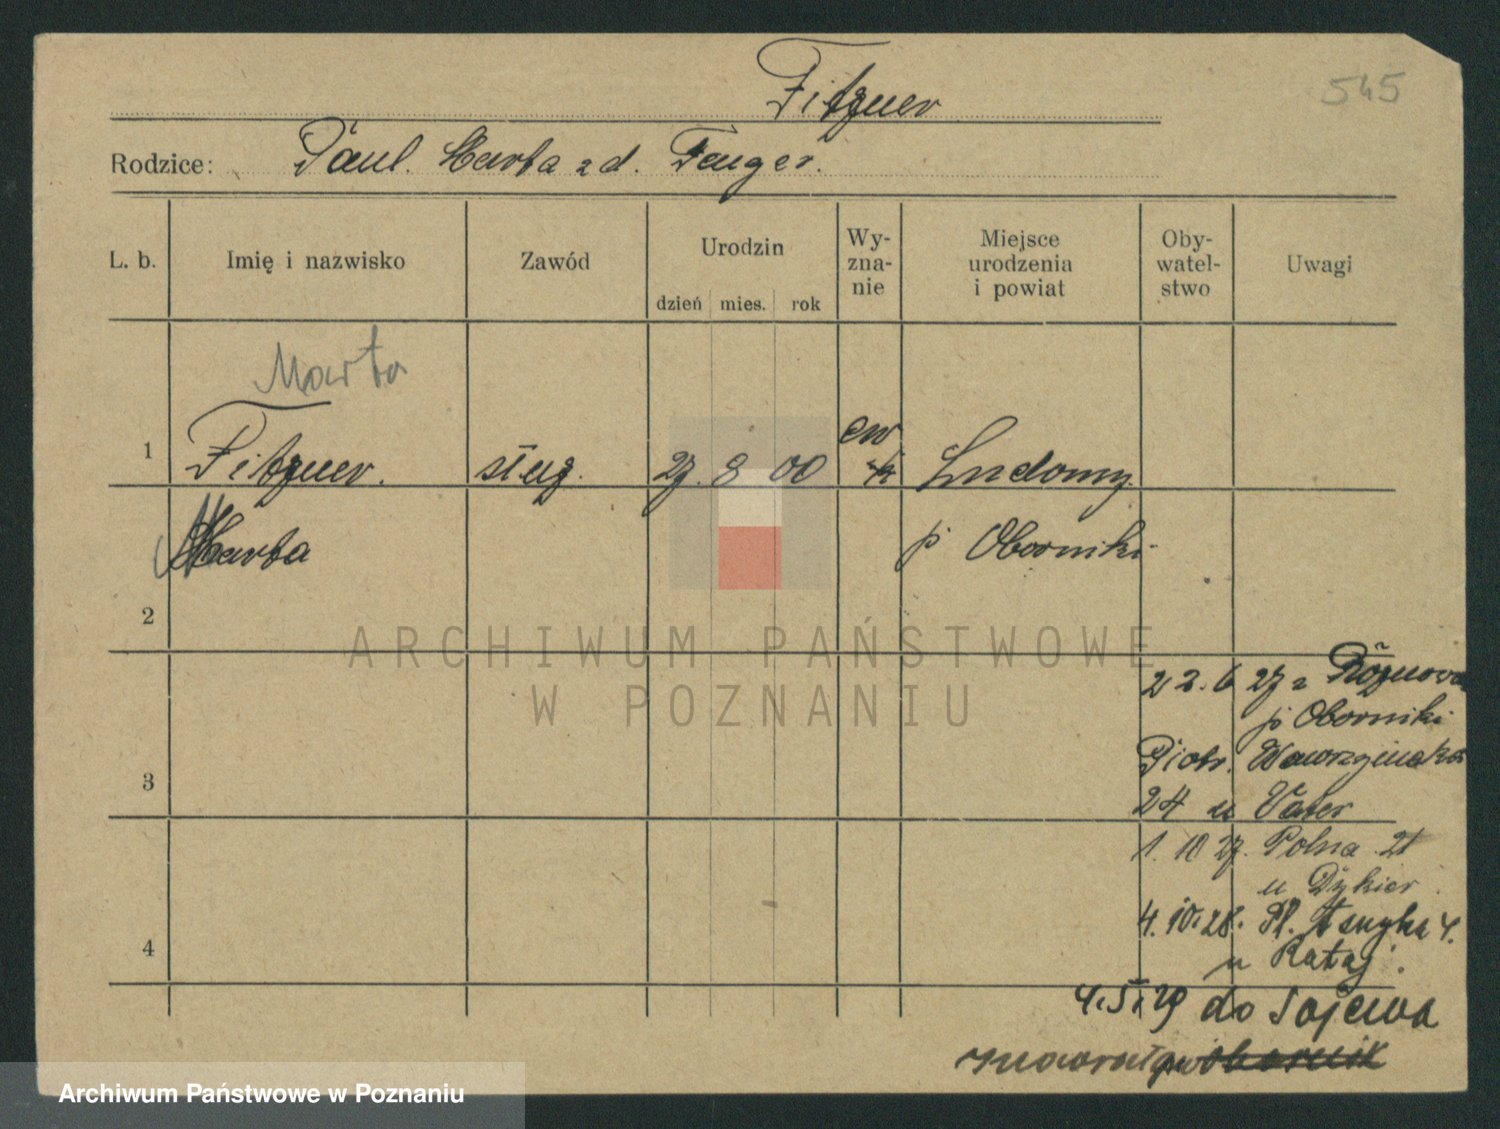 Fitzner
545
Rodzice: Paul. Marta z d. Fenger.
L. b. Imię i nazwisko Zawód Urodzin dzień mies. rok Wy-zna-nie Miejsce urodzenia i powiat Oby-watel-stwo Uwagi
Marta
1 Fitzner. służ. 27. 8 00 ew Ludomy
Marta p Oborniki
2
ARCHIWUM PAŃSTWOWE
W POZNANIU
22. 6 27 z Rożnowa
p Oborniki
Piotr. Wawrzyniaka
3
24 u Vater
1. 10 27. Polna 21
u Dykier
4. 10. 28. Pl. 4.
4
u Rataj.
4. 5. 29 do
Archiwum Państwowe w Poznaniu